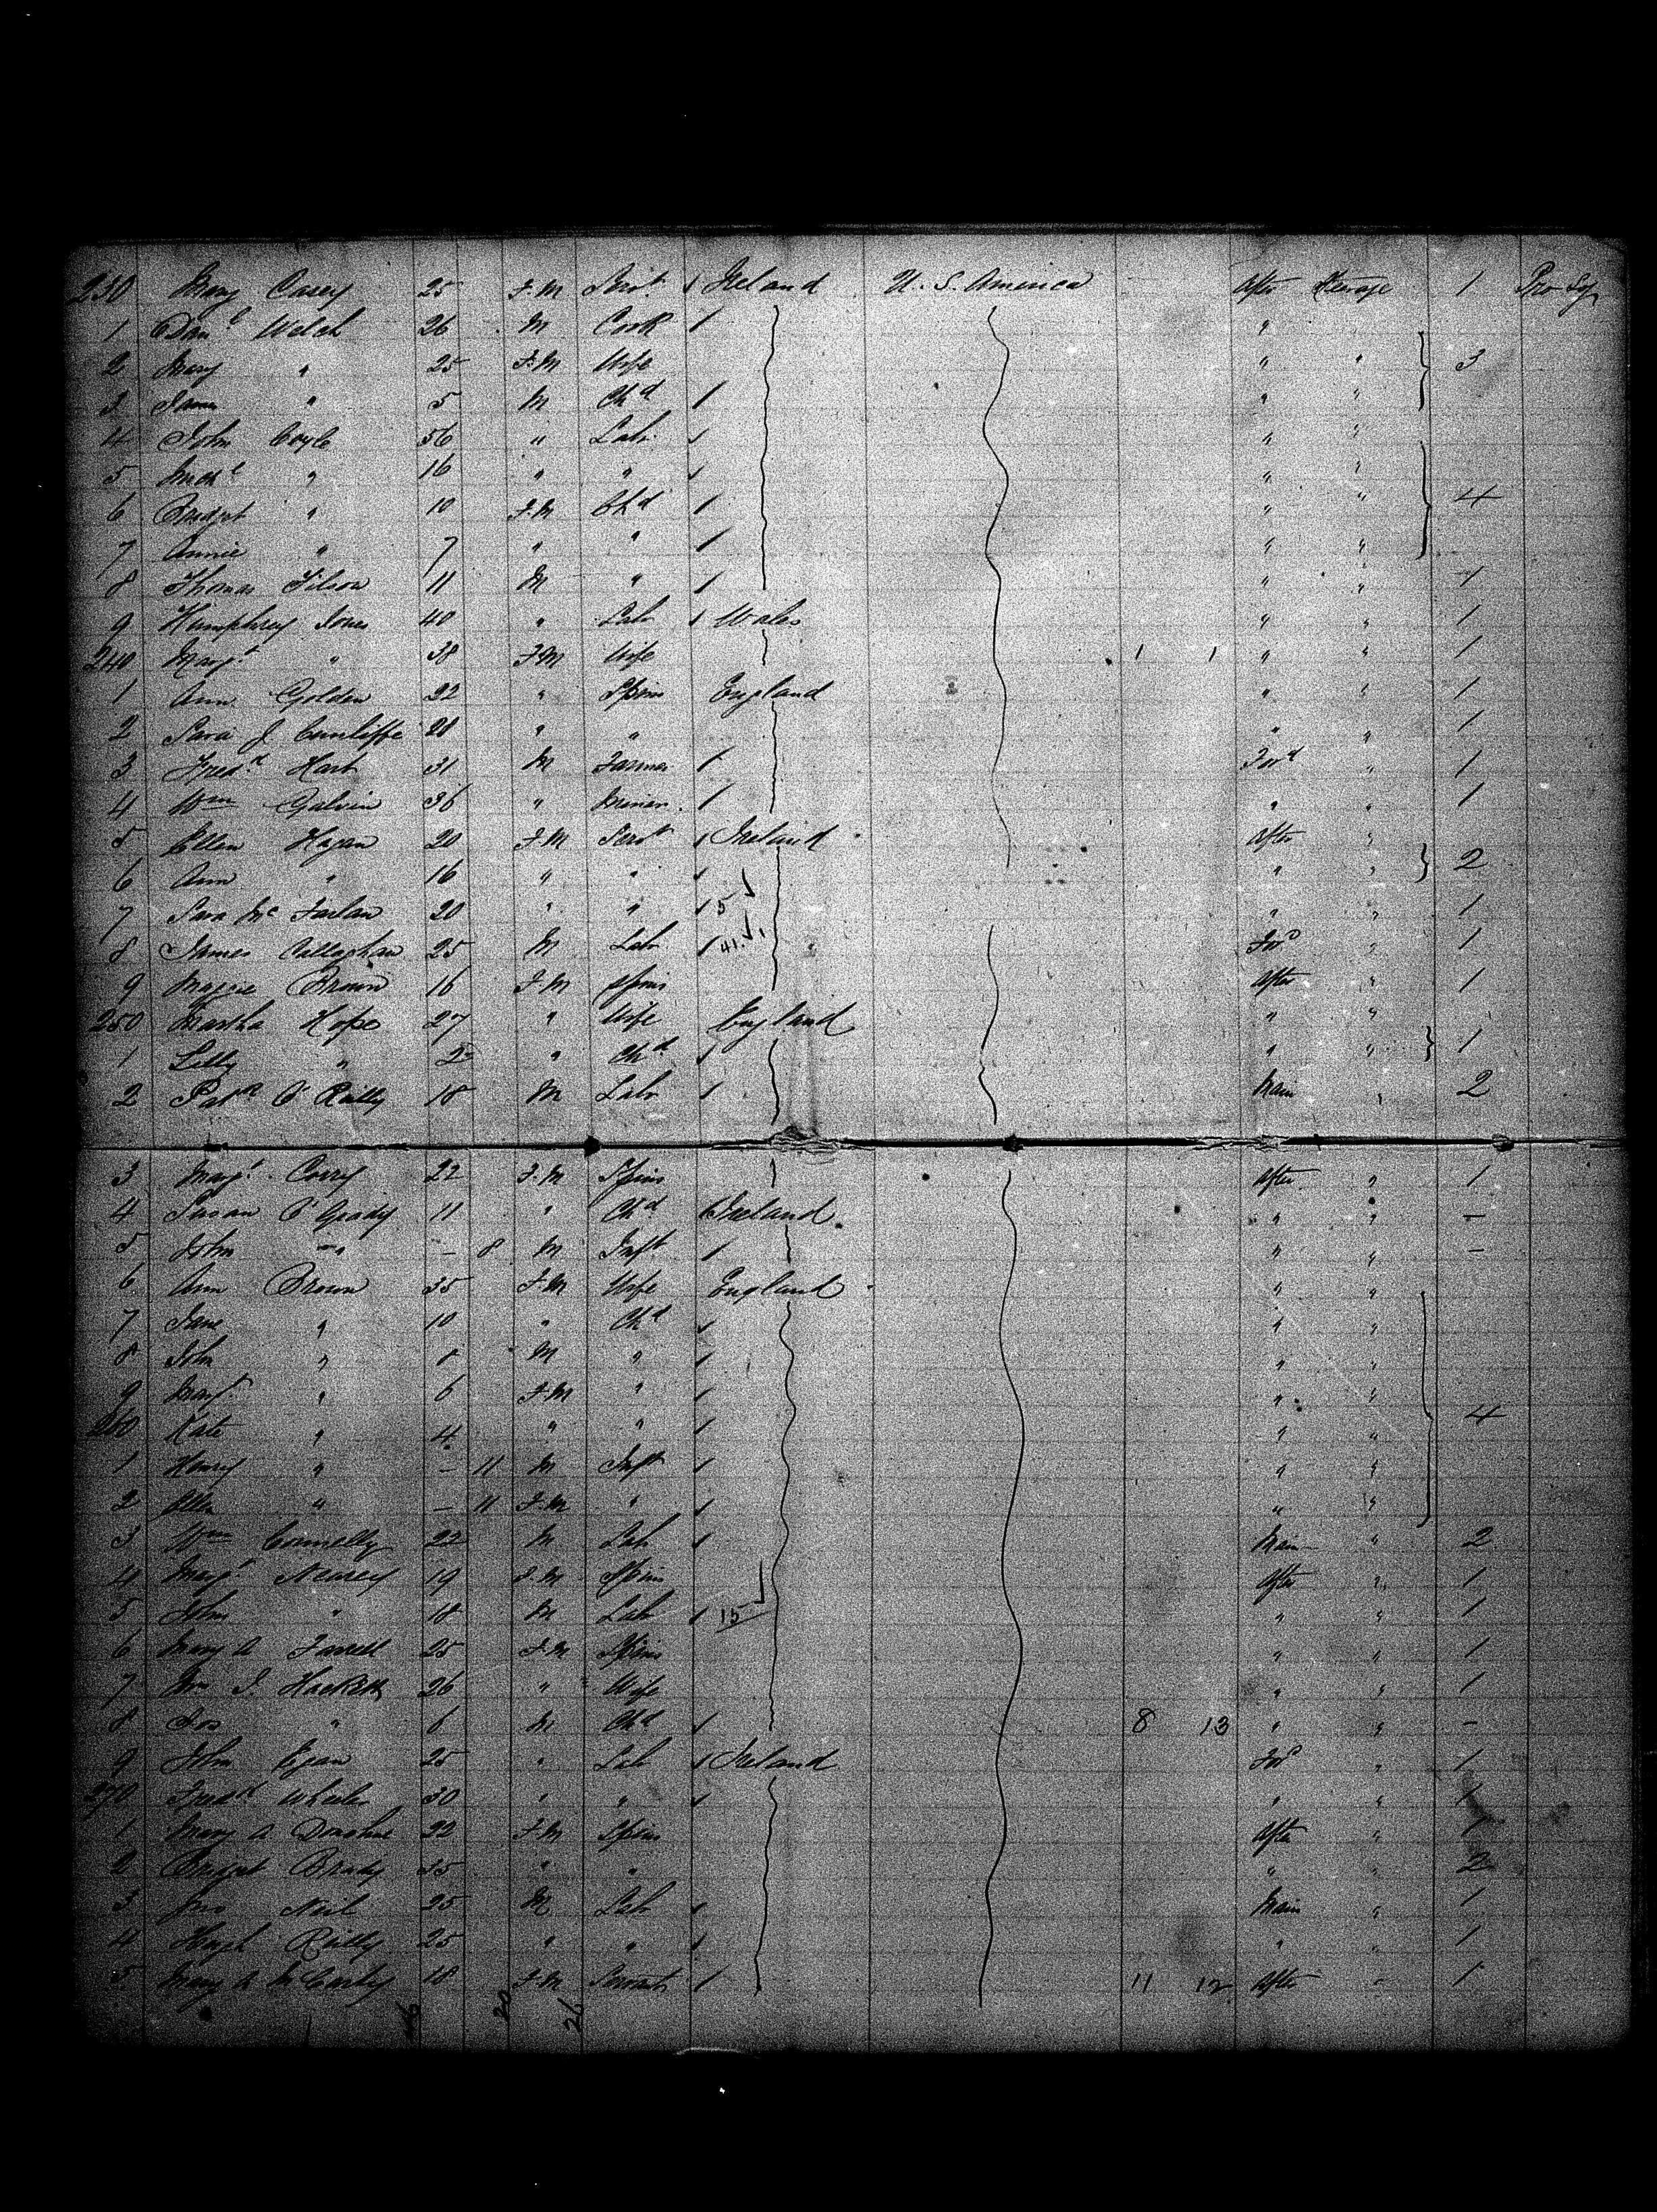 230 Mary Casey 25 F.M Servt 1 Ireland U. S. America After Steerage 1 Pro Sy
1 Danl Welch 26 M Cook 1 "
2 Mary " 25 F.M Wife " " 3
3 James " 5 M Chd 1 " "
4 John Coyle 56 " Labr 1 " "
5 Michl " 16 " " 1 "
6 Bridget " 10 F.M Chd 1 " " 4
7 Annie " 7 " " 1 " "
8 Thomas Filson 11 M " 1 " " 1
9 Humphrey Jones 40 " Labr 1 Wales " " 1
240 Margt " 38 F.M Wife 1 1 " " 1
1 Ann Golden 22 " Spins England " " 1
2 Sara J Cunliffe 28 " " " " 1
3 Fredk Hart 31 M Farmer 1 Ford " 1
4 Wm Galvin 36 " 1 " " 1
5 Ellen Hagan 20 F.M Servt 1 Ireland After "
6 Ann " 16 " " 1 " " 2
7 Sara McFarlan 20 " " 1 5 " " 1
8 James Callaghan 25 M Labr 1 41. Ford " 1
9 Maggie Brown 16 F.M Spins After " 1
250 Martha Hope 27 " Wife England " "
1 Lilly " 2 " Chd 1 " " 1
2 Patk O'Reilly 18 M Labr 1 Main " 2
3 Margt Corry 22 F.M Spins After " 1
4 Susan O'Grady 11 " Chd 1 Ireland " " -
5 John " - 8 M Inft 1 " " -
6 Ann Brown 35 F.M Wife England " "
7 Jane " 10 " Chd 1 " "
8 John " 8 M " 1 " "
9 Margt " 6 F.M " 1 " "
260 Kate " 4 " " 1 " " 4
1 Henry " - 11 M Inft 1 " "
2 Ellen " - 11 F.M " 1 " "
3 Wm Connelly 22 M Labr 1 Main " 2
4 Margt 19 F.M Spins After " 1
5 John " 18 M Labr 1 15 " " 1
6 Mary A Farrell 25 F.M Spins " " 1
7 J. Hackett 26 " Wife " " 1
8 Jos " 6 M Chd 1 8 13 " " -
9 John Egan 25 " Labr 1 Ireland Ford " 1
270 Fredk Wheeler 30 " " 1 " " 1
1 Mary A Donohue 22 F.M Spins After " 1
2 Bridget Brady 35 " " " " 2
3 Neil 25 M Labr 1 Main " 1
4 Hugh Reilly 25 " " 1 " " 1
5 Mary A McCarthy 18 F.M Servant 1 11 12 After " 1
26 20 26